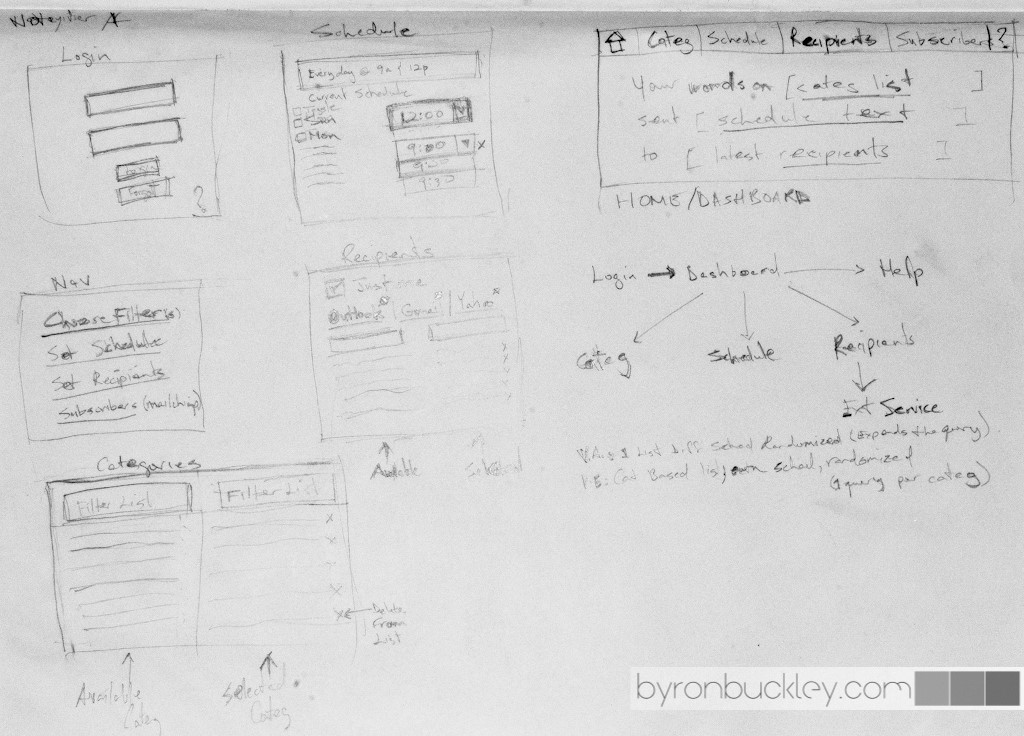 Login
Schedule
Everyday @ 9a & 12p
Current Schedule
Sun
Mon
12:00
9:00
9:00
9:30
Categ | Schedule | Recipients | Subscribers | ?
Your words on [categ list ]
sent [ schedule text ]
to [ latest recipients ]
HOME/DASHBOARD
?
Nav
Choose Filter(s)
Set Schedule
Set Recipients
Subscribers (mailchimp)
Recipients
Just me
Outlook | Gmail | Yahoo
Available
Selected
Login → Dashboard → Help
Categ
Schedule
Recipients
Ext Service
1 List Diff Sched Randomized (Expands the query)
Cat Based list, own sched, randomized
(1 query per categ)
Categories
Filter List
Filter List
x
x
x
x
Delete
From
List
Available
Categ
Selected
Categ
byronbuckley.com